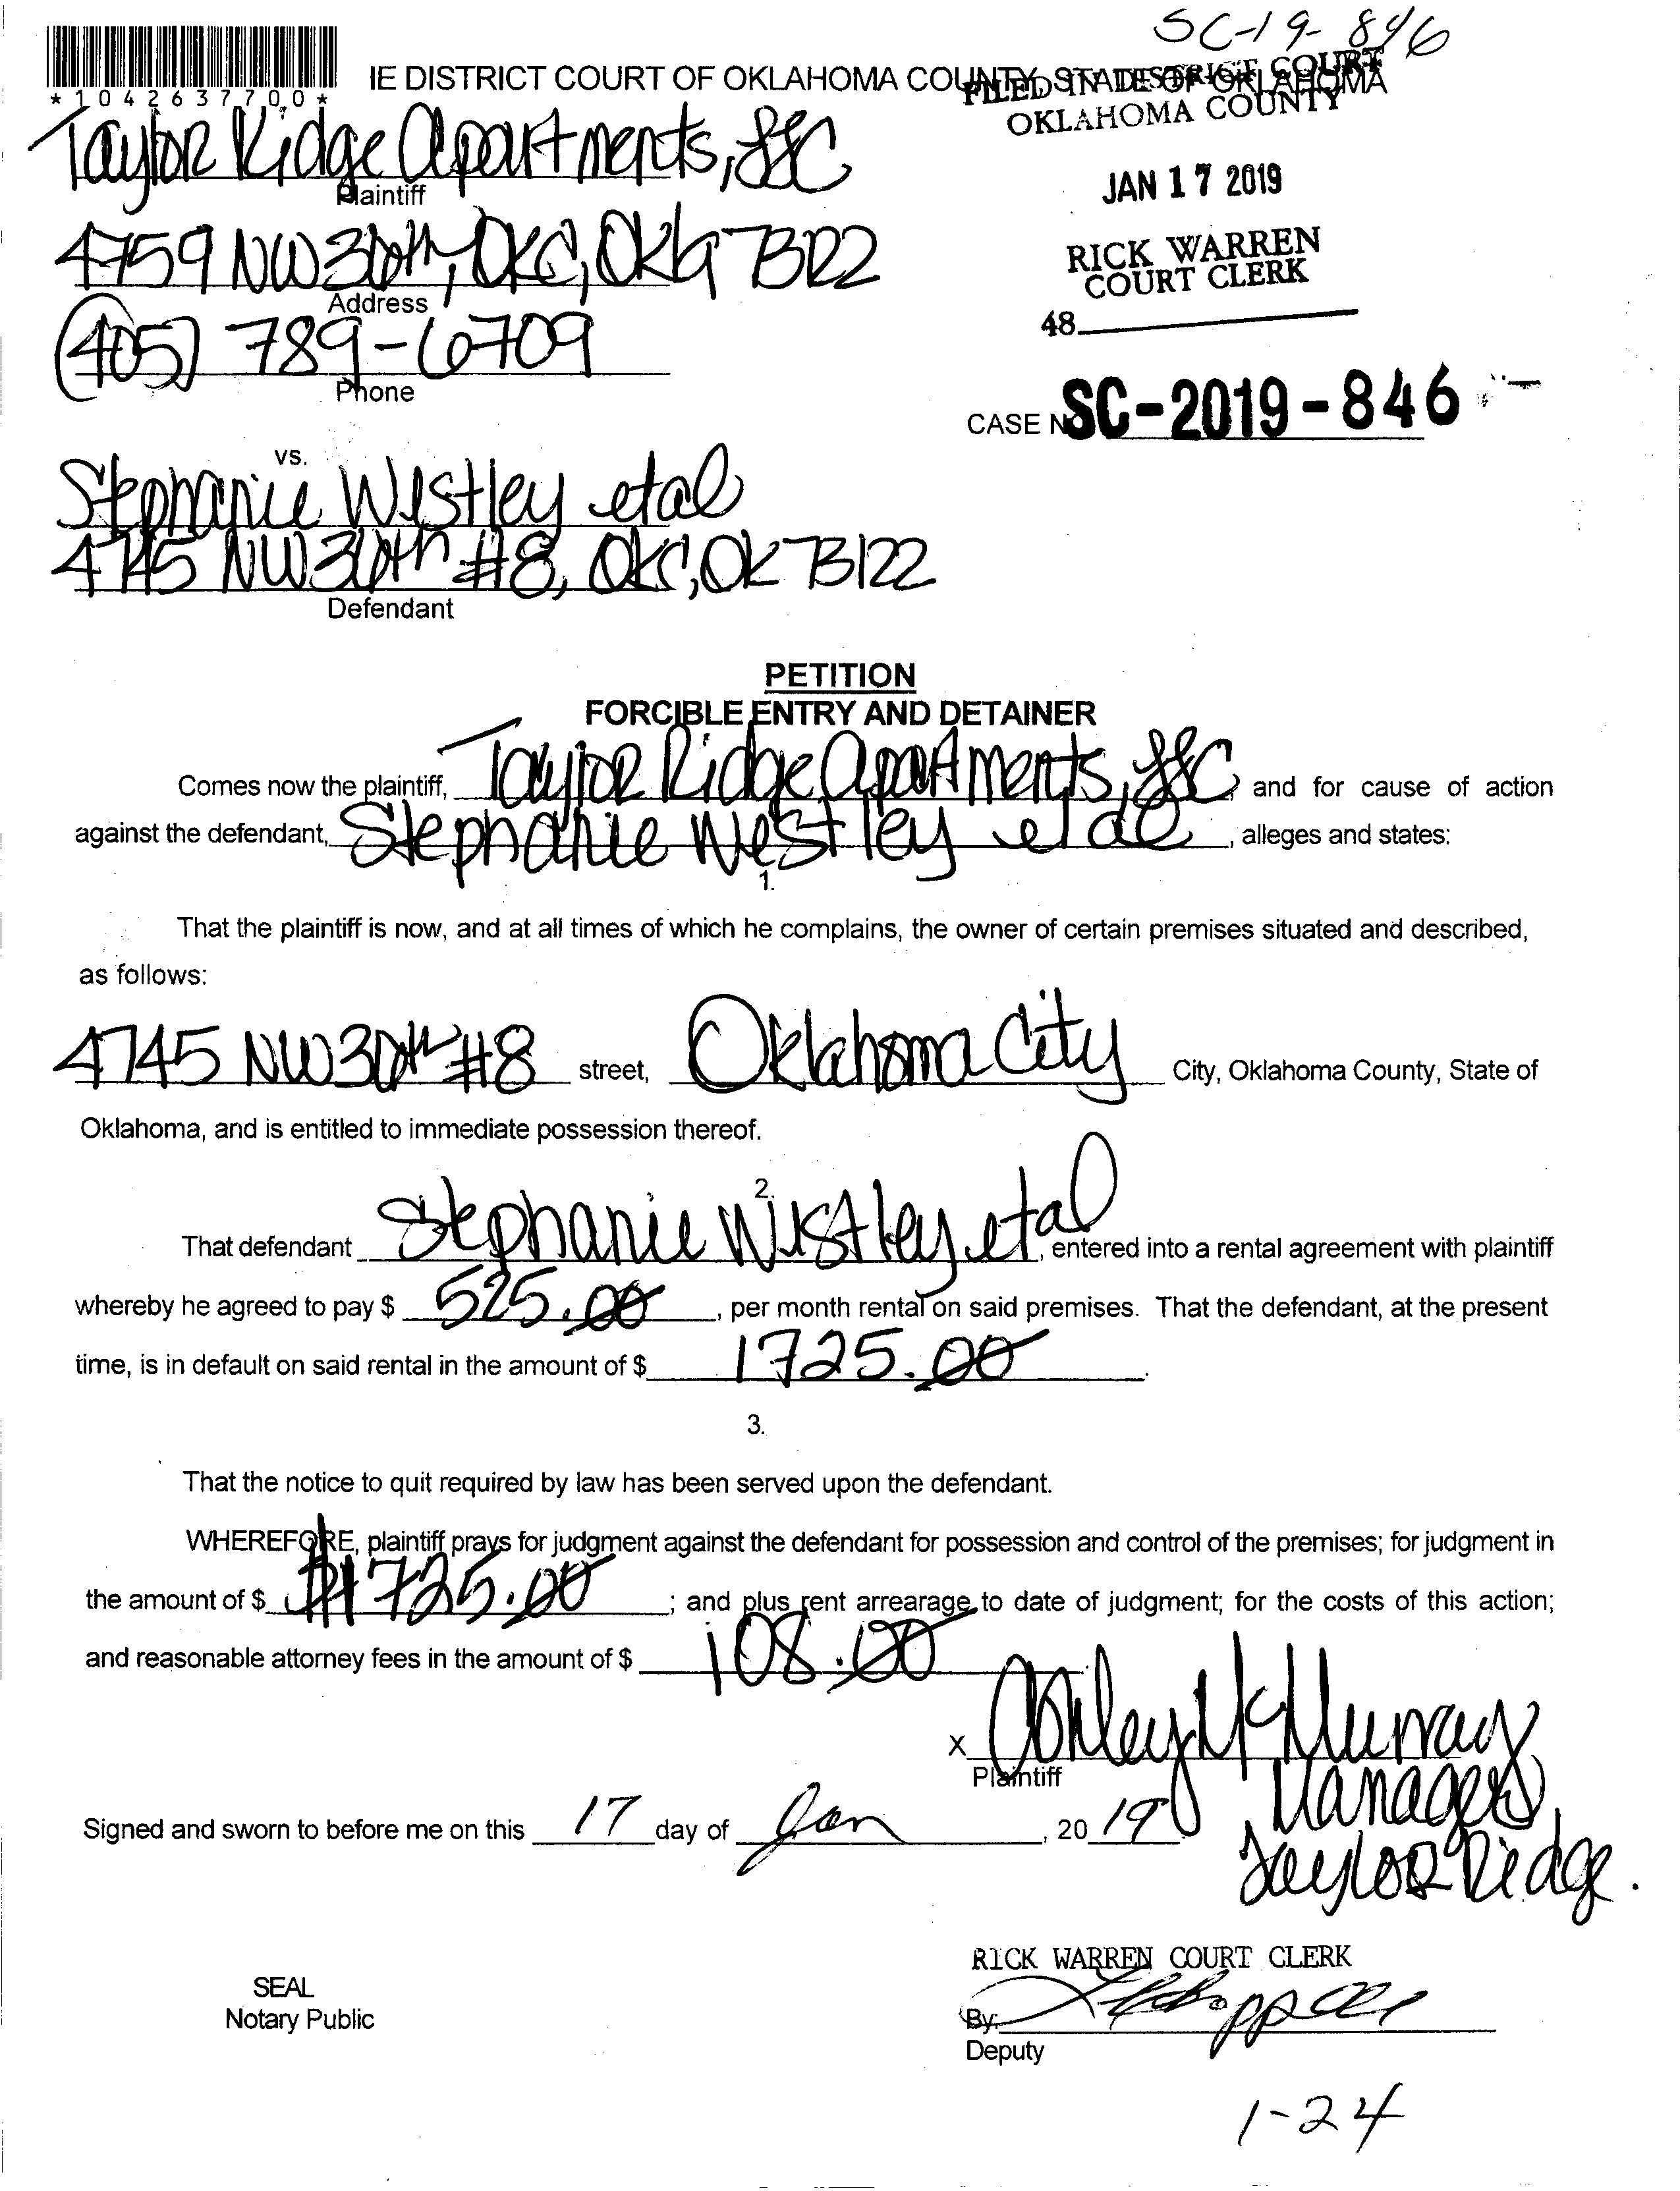 SC-19-846
IE DISTRICT COURT OF OKLAHOMA COUNTY, STATE OF OKLAHOMA
FILED IN DISTRICT COURT
OKLAHOMA COUNTY
*1042637700*
JAN 17 2019
RICK WARREN
COURT CLERK
48
Taylor Ridge Apartments, LLC
Plaintiff
4759 NW 30th, OKC, Okla 73122
Address
(405) 789-6709
Phone
CASE NO SC-2019-846
vs.
Stephanie Westley etal
4745 NW 30th #8, OKC, OK 73122
Defendant
PETITION
FORCIBLE ENTRY AND DETAINER
Comes now the plaintiff, Taylor Ridge Apartments, LLC, and for cause of action
against the defendant, Stephanie Westley etal, alleges and states:
1.
That the plaintiff is now, and at all times of which he complains, the owner of certain premises situated and described,
as follows:
4745 NW 30th #8 street, Oklahoma City City, Oklahoma County, State of
Oklahoma, and is entitled to immediate possession thereof.
2.
That defendant Stephanie Westley etal, entered into a rental agreement with plaintiff
whereby he agreed to pay $ 525.00, per month rental on said premises. That the defendant, at the present
time, is in default on said rental in the amount of $ 1725.00.
3.
That the notice to quit required by law has been served upon the defendant.
WHEREFORE, plaintiff prays for judgment against the defendant for possession and control of the premises; for judgment in
the amount of $ $1725.00; and plus rent arrearage to date of judgment; for the costs of this action;
and reasonable attorney fees in the amount of $ 108.00
x Ashley McMurray
Plaintiff
Manager
Signed and sworn to before me on this 17 day of Jan, 2019
Taylor Ridge.
RICK WARREN COURT CLERK
SEAL
Notary Public
By:
Deputy
1-24